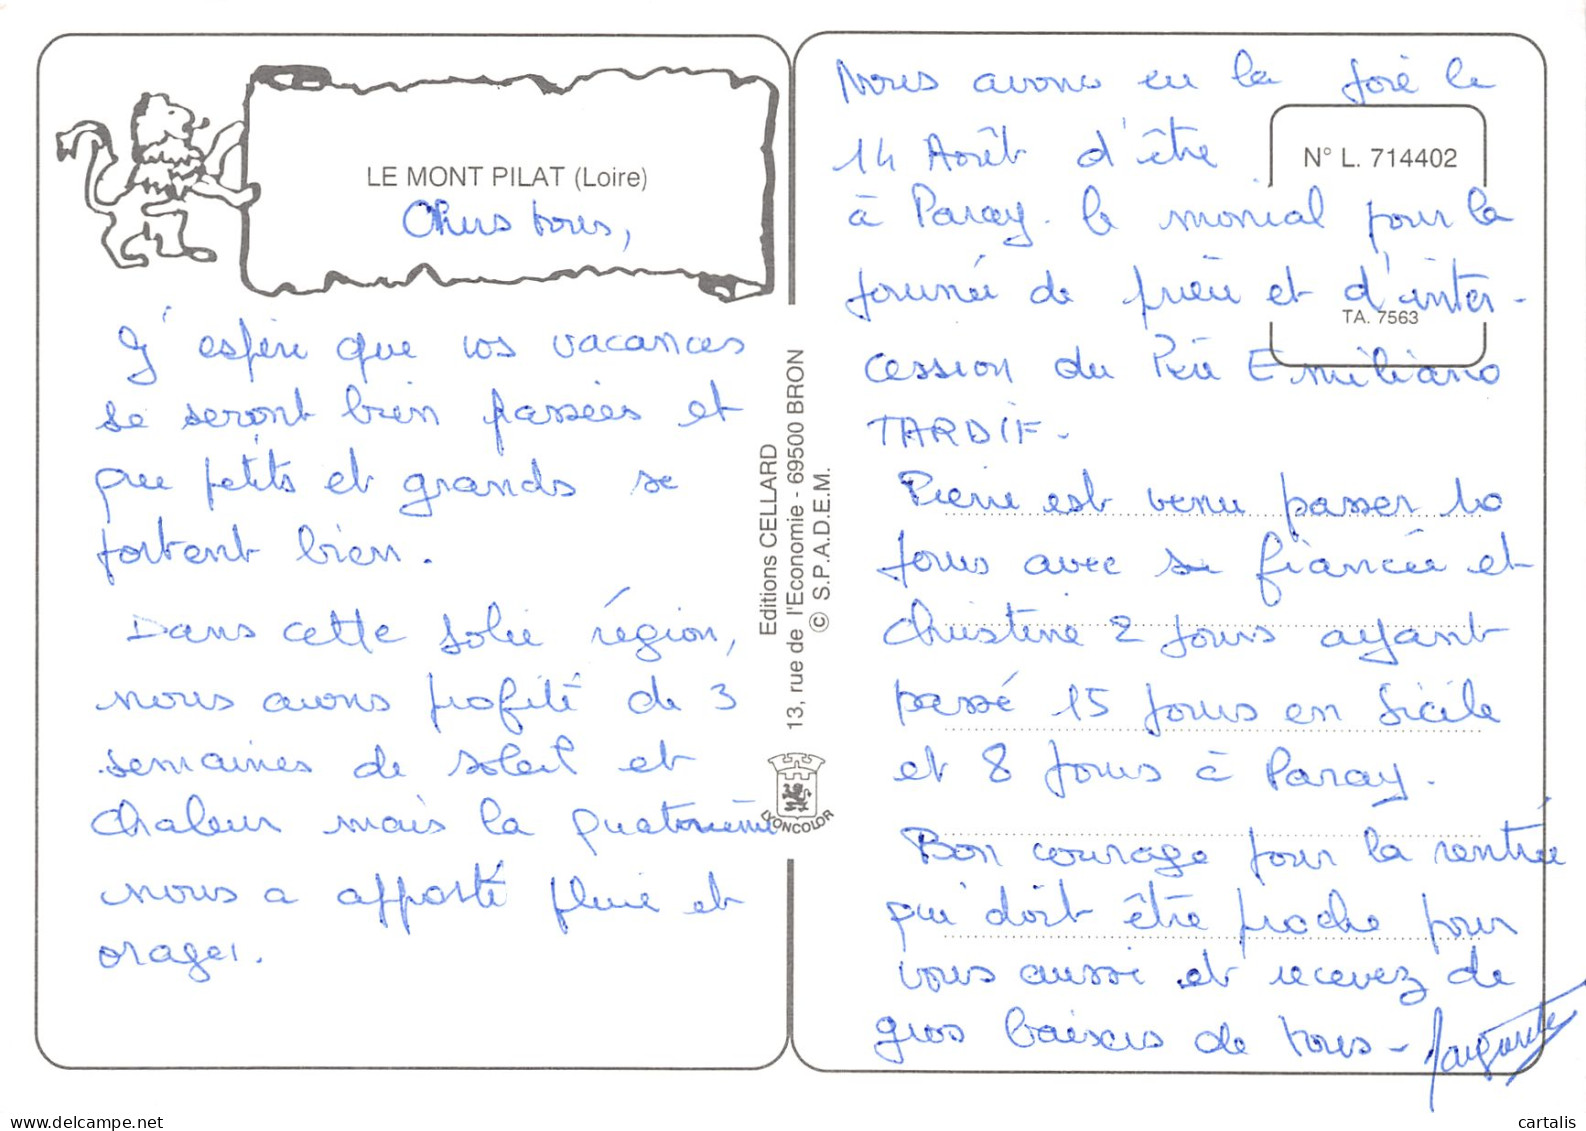 LE MONT PILAT (Loire)
Chers tous,
J'espère que vos vacances
se seront bien passées et
que petits et grands se
portent bien.
Dans cette jolie région,
nous avons profité de 3
semaines de soleil et
chaleur mais la quatrième
nous a apporté pluie et
orages.
Editions CELLARD
13, rue de l'Economie - 69500 BRON
© S.P.A.D.E.M.
LYONCOLOR
N° L. 714402
TA. 7563
Nous avons eu la joie le
14 Août d'être
à Paray-le monial pour la
journée de prière et d'inter-
cession du Père Emiliano
TARDIF-
Pierre est venu passer 10
jours avec sa fiancée et
Christine 2 jours ayant
passé 15 jours en Sicile
et 8 jours à Paray.
Bon courage pour la rentrée
qui doit être proche pour
vous aussi et recevez de
gros baisers de tous-
Marguerite
cartalis
www.delcampe.net